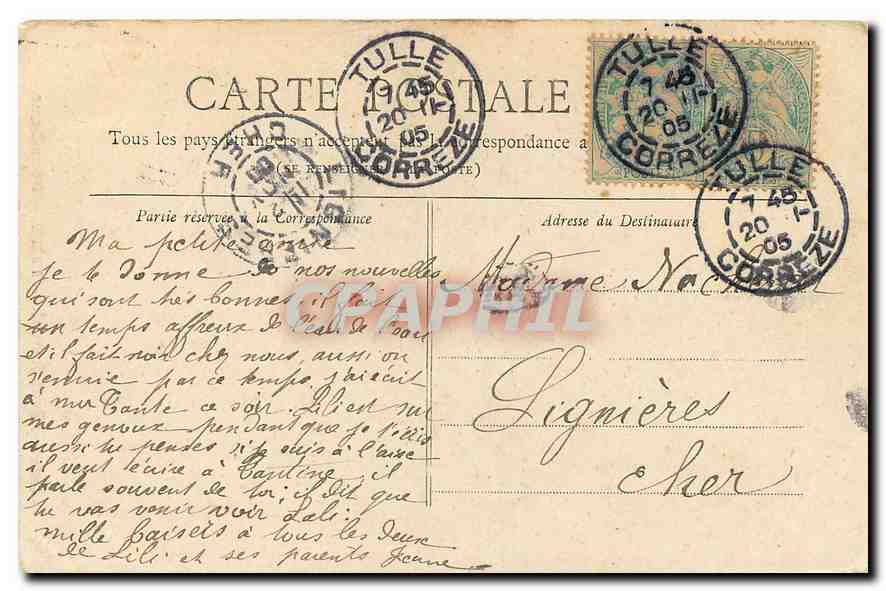 CARTE POSTALE
Tous les pays étrangers n'acceptent pas la correspondance a
(SE RENSEIGNER POSTE)
TULLE
7 45
20
05
CORRÈZE
TULLE
7 45
20
05
CORRÈZE
TULLE
7 45
20
05
CORRÈZE
CHER
Partie réservée à la Correspondance
Adresse du Destinataire
Ma petite
je te donne nos nouvelles
qui sont très bonnes, il fait
un temps affreux de l'eau de l'eau
et il fait noir chez nous, aussi on
s'ennuie par ce temps. j'ai écrit
à ma Tante ce soir. Lili est sur
mes genoux pendant que je t'écris
aussi tu penses si je suis à l'aise
il veut écrire à Tantine il
parle souvent de toi; il dit que
tu vas venir voir Lali.
mille baisers à tous les deux
de Lili et ses parents Jeanne
Madame
Lignières
Cher
CPAPHIL